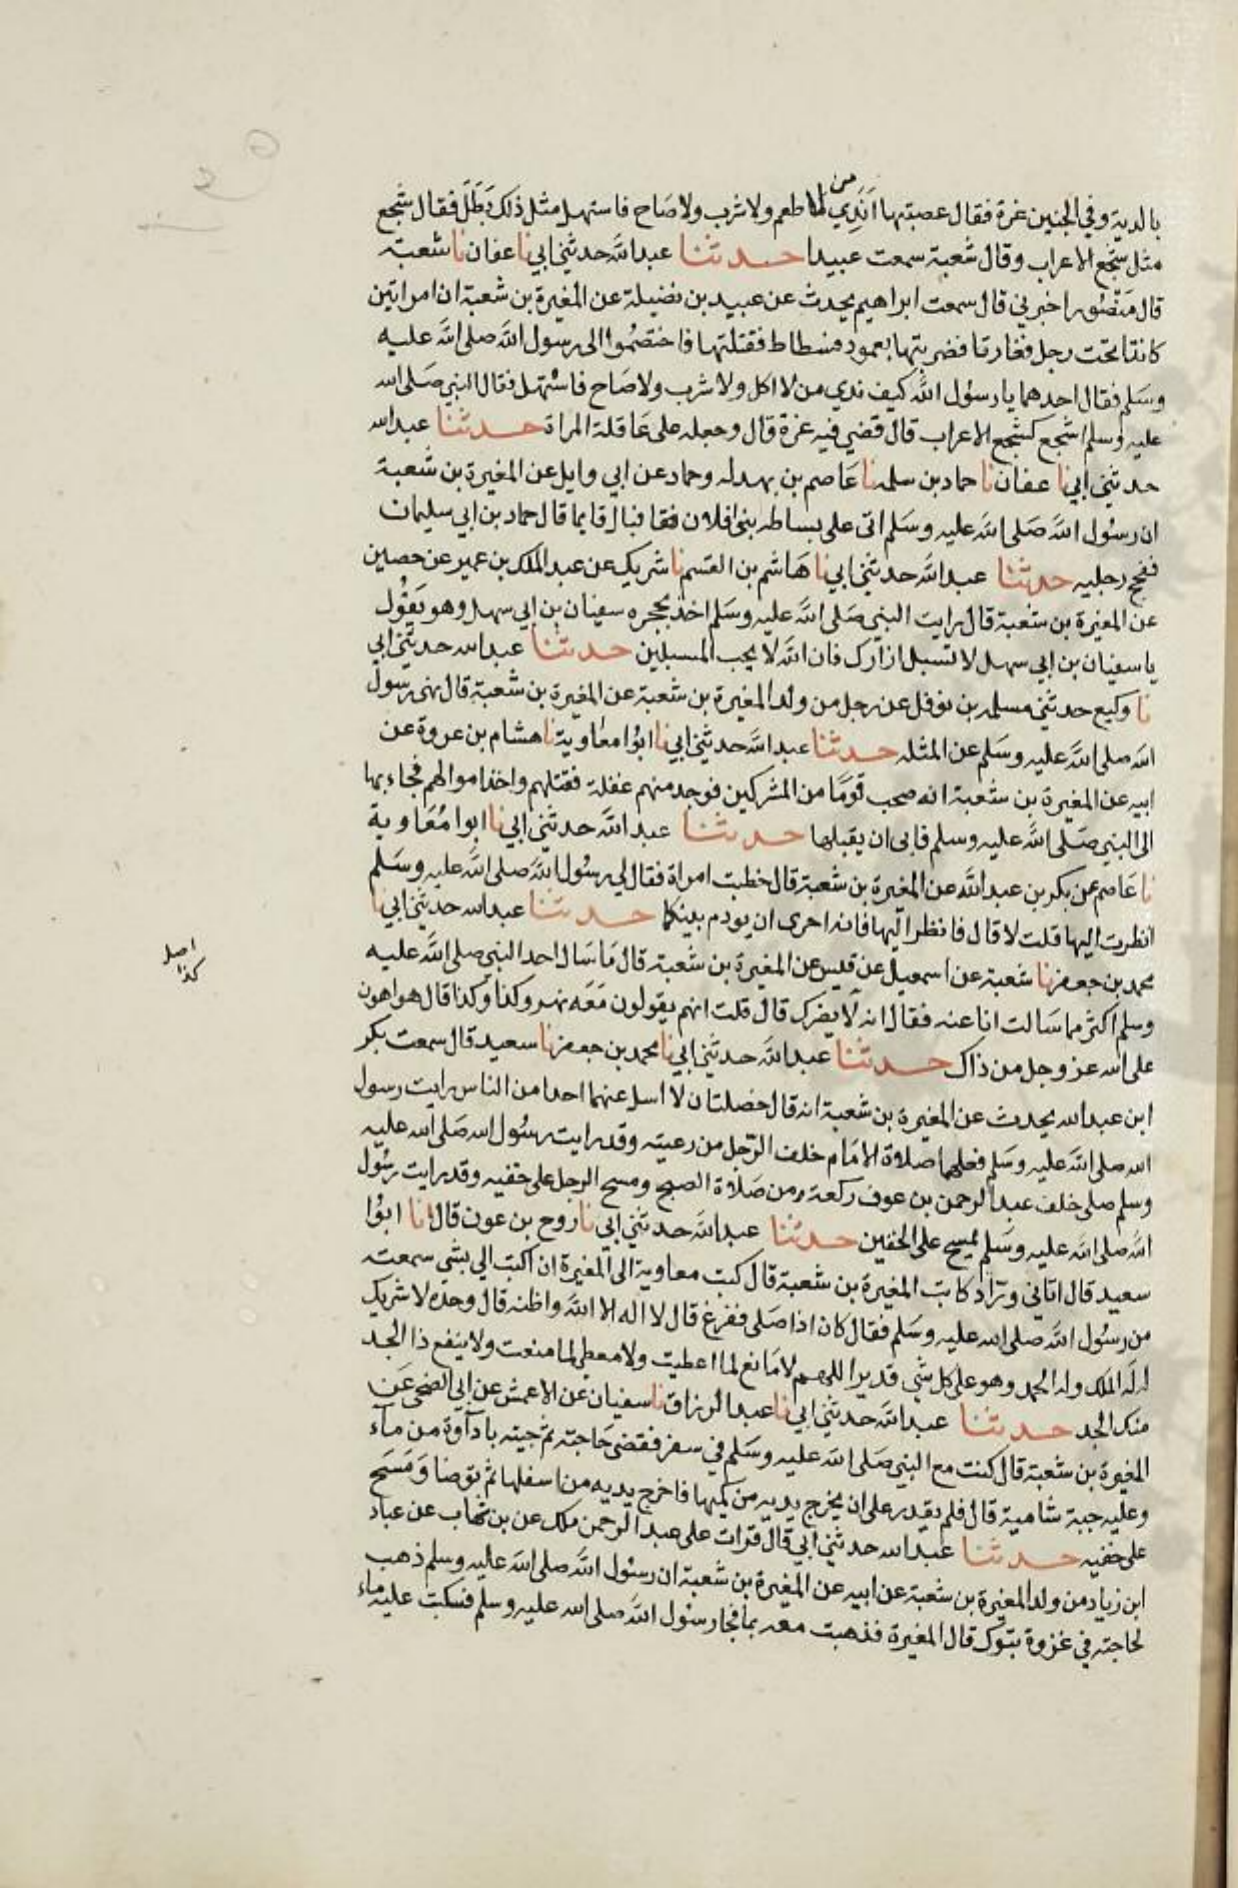 بالدية وفي الجنين غرة فقال عصبتها اندي من لا طعم ولا شرب ولا صاح فاستهل مثل ذلك بطل فقال سجع
مثل سجع الاعراب وقال شعبة سمعت عبيدا حدثنا عبد الله حدثني ابي نا عفان نا شعبة
قال منصور اخبرني قال سمعت ابراهيم يحدث عن عبيد بن نضيلة عن المغيرة بن شعبة ان امراتين
كانتا تحت رجل فغارتا فضربتها بعمود فسطاط فقتلتها فاختصموا الى رسول الله صلى الله عليه
وسلم فقال احدهما يا رسول الله كيف ندي من لا اكل ولا شرب ولا صاح فاستهل فقال النبي صلى الله
عليه وسلم اسجع كسجع الاعراب قال قضي فيه غرة قال وجعله على عاقلة المراة حدثنا عبد الله
حدثني ابي نا عفان نا حماد بن سلمة نا عاصم بن بهدلة وحماد عن ابي وايل عن المغيرة بن شعبة
ان رسول الله صلى الله عليه وسلم اتى على سباطة بني فلان فقا فبال قايما قال حماد بن ابي سليمان
ففحج رجليه حدثنا عبد الله حدثني ابي نا هاشم بن القسم نا شريك عن عبد الملك بن عمير عن حصين
عن المغيرة بن شعبة قال رايت النبي صلى الله عليه وسلم اخذ بحجزه سفيان بن ابي سهل وهو يقول
يا سفيان بن ابي سهل لا تسبل ازارك فان الله لا يحب المسبلين حدثنا عبد الله حدثني ابي
نا وكيع حدثني مسلمة بن نوفل عن رجل من ولد المغيرة بن شعبة عن المغيرة بن شعبة قال نهى رسول
الله صلى الله عليه وسلم عن المثلة حدثنا عبد الله حدثني ابي نا ابوا معاوية نا هشام بن عروة عن
ابيه عن المغيرة بن شعبة انه صحب قوما من المشركين فوجد منهم غفلة فقتلهم واخذ اموالهم فجاء بها
الى النبي صلى الله عليه وسلم فابى ان يقبلها حدثنا عبد الله حدثني ابي نا ابوا معاوية
نا عاصم عن بكر بن عبد الله عن المغيرة بن شعبة قال خطبت امراة فقال لي رسول الله صلى الله عليه وسلم
انظرت اليها قلت لا قال فانظر اليها فانه احرى ان يودم بينكما حدثنا عبد الله حدثني ابي نا
محمد بن جعفر نا شعبة عن اسمعيل عن قيس عن المغيرة بن شعبة قال ما سال احد النبي صلى الله عليه
اصل
كذا
وسلم اكثر مما سالت انا عنه فقال انه لا يضرك قال قلت انهم يقولون معه نهر وكذا وكذا قال هو اهون
على الله عز وجل من ذاك حدثنا عبد الله حدثني ابي نا محمد بن جعفر نا سعيد قال سمعت بكر
ابن عبد الله يحدث عن المغيرة بن شعبة انه قال خصلتان لا اسل عنهما احدا من الناس رايت رسول
الله صلى الله عليه وسلم فعلهما صلاة الامام خلف الرجل من رعيته وقد رايت رسول الله صلى الله عليه
وسلم صلى خلف عبد الرحمن بن عوف ركعة من صلاة الصبح ومسح الرجل على خفيه وقد رايت رسول
الله صلى الله عليه وسلم يمسح على الخفين حدثنا عبد الله حدثني ابي نا روح بن عون قال انا ابوا
سعيد قال اتاني وتراد كاتب المغيرة بن شعبة قال كتب معاوية الى المغيرة ان اكتب الي بشي سمعته
من رسول الله صلى الله عليه وسلم فقال كان اذا صلى ففرغ قال لا اله الا الله واظنه قال وحده لا شريك
له له الملك وله الحمد وهو على كل شي قدير اللهم لا مانع لما اعطيت ولا معطي لما منعت ولا ينفع ذا الجد
منك الجد حدثنا عبد الله حدثني ابي نا عبد الرزاق نا سفيان عن الاعمش عن ابي الضحى عن
المغيرة بن شعبة قال كنت مع النبي صلى الله عليه وسلم في سفر فقضى حاجته ثم جيته باداوة من ماء
وعليه جبة شامية قال فلم يقدر على ان يخرج يديه من كميها فاخرج يديه من اسفلها ثم توضا ومسح
على خفيه حدثنا عبد الله حدثني ابي قال قرات على عبد الرحمن ملك عن بن شهاب عن عباد
ابن زياد من ولد المغيرة بن شعبة عن ابيه عن المغيرة بن شعبة ان رسول الله صلى الله عليه وسلم ذهب
لحاجته في غزوة تبوك قال المغيرة فذهبت معه بما فجا رسول الله صلى الله عليه وسلم فسكبت عليه ماء